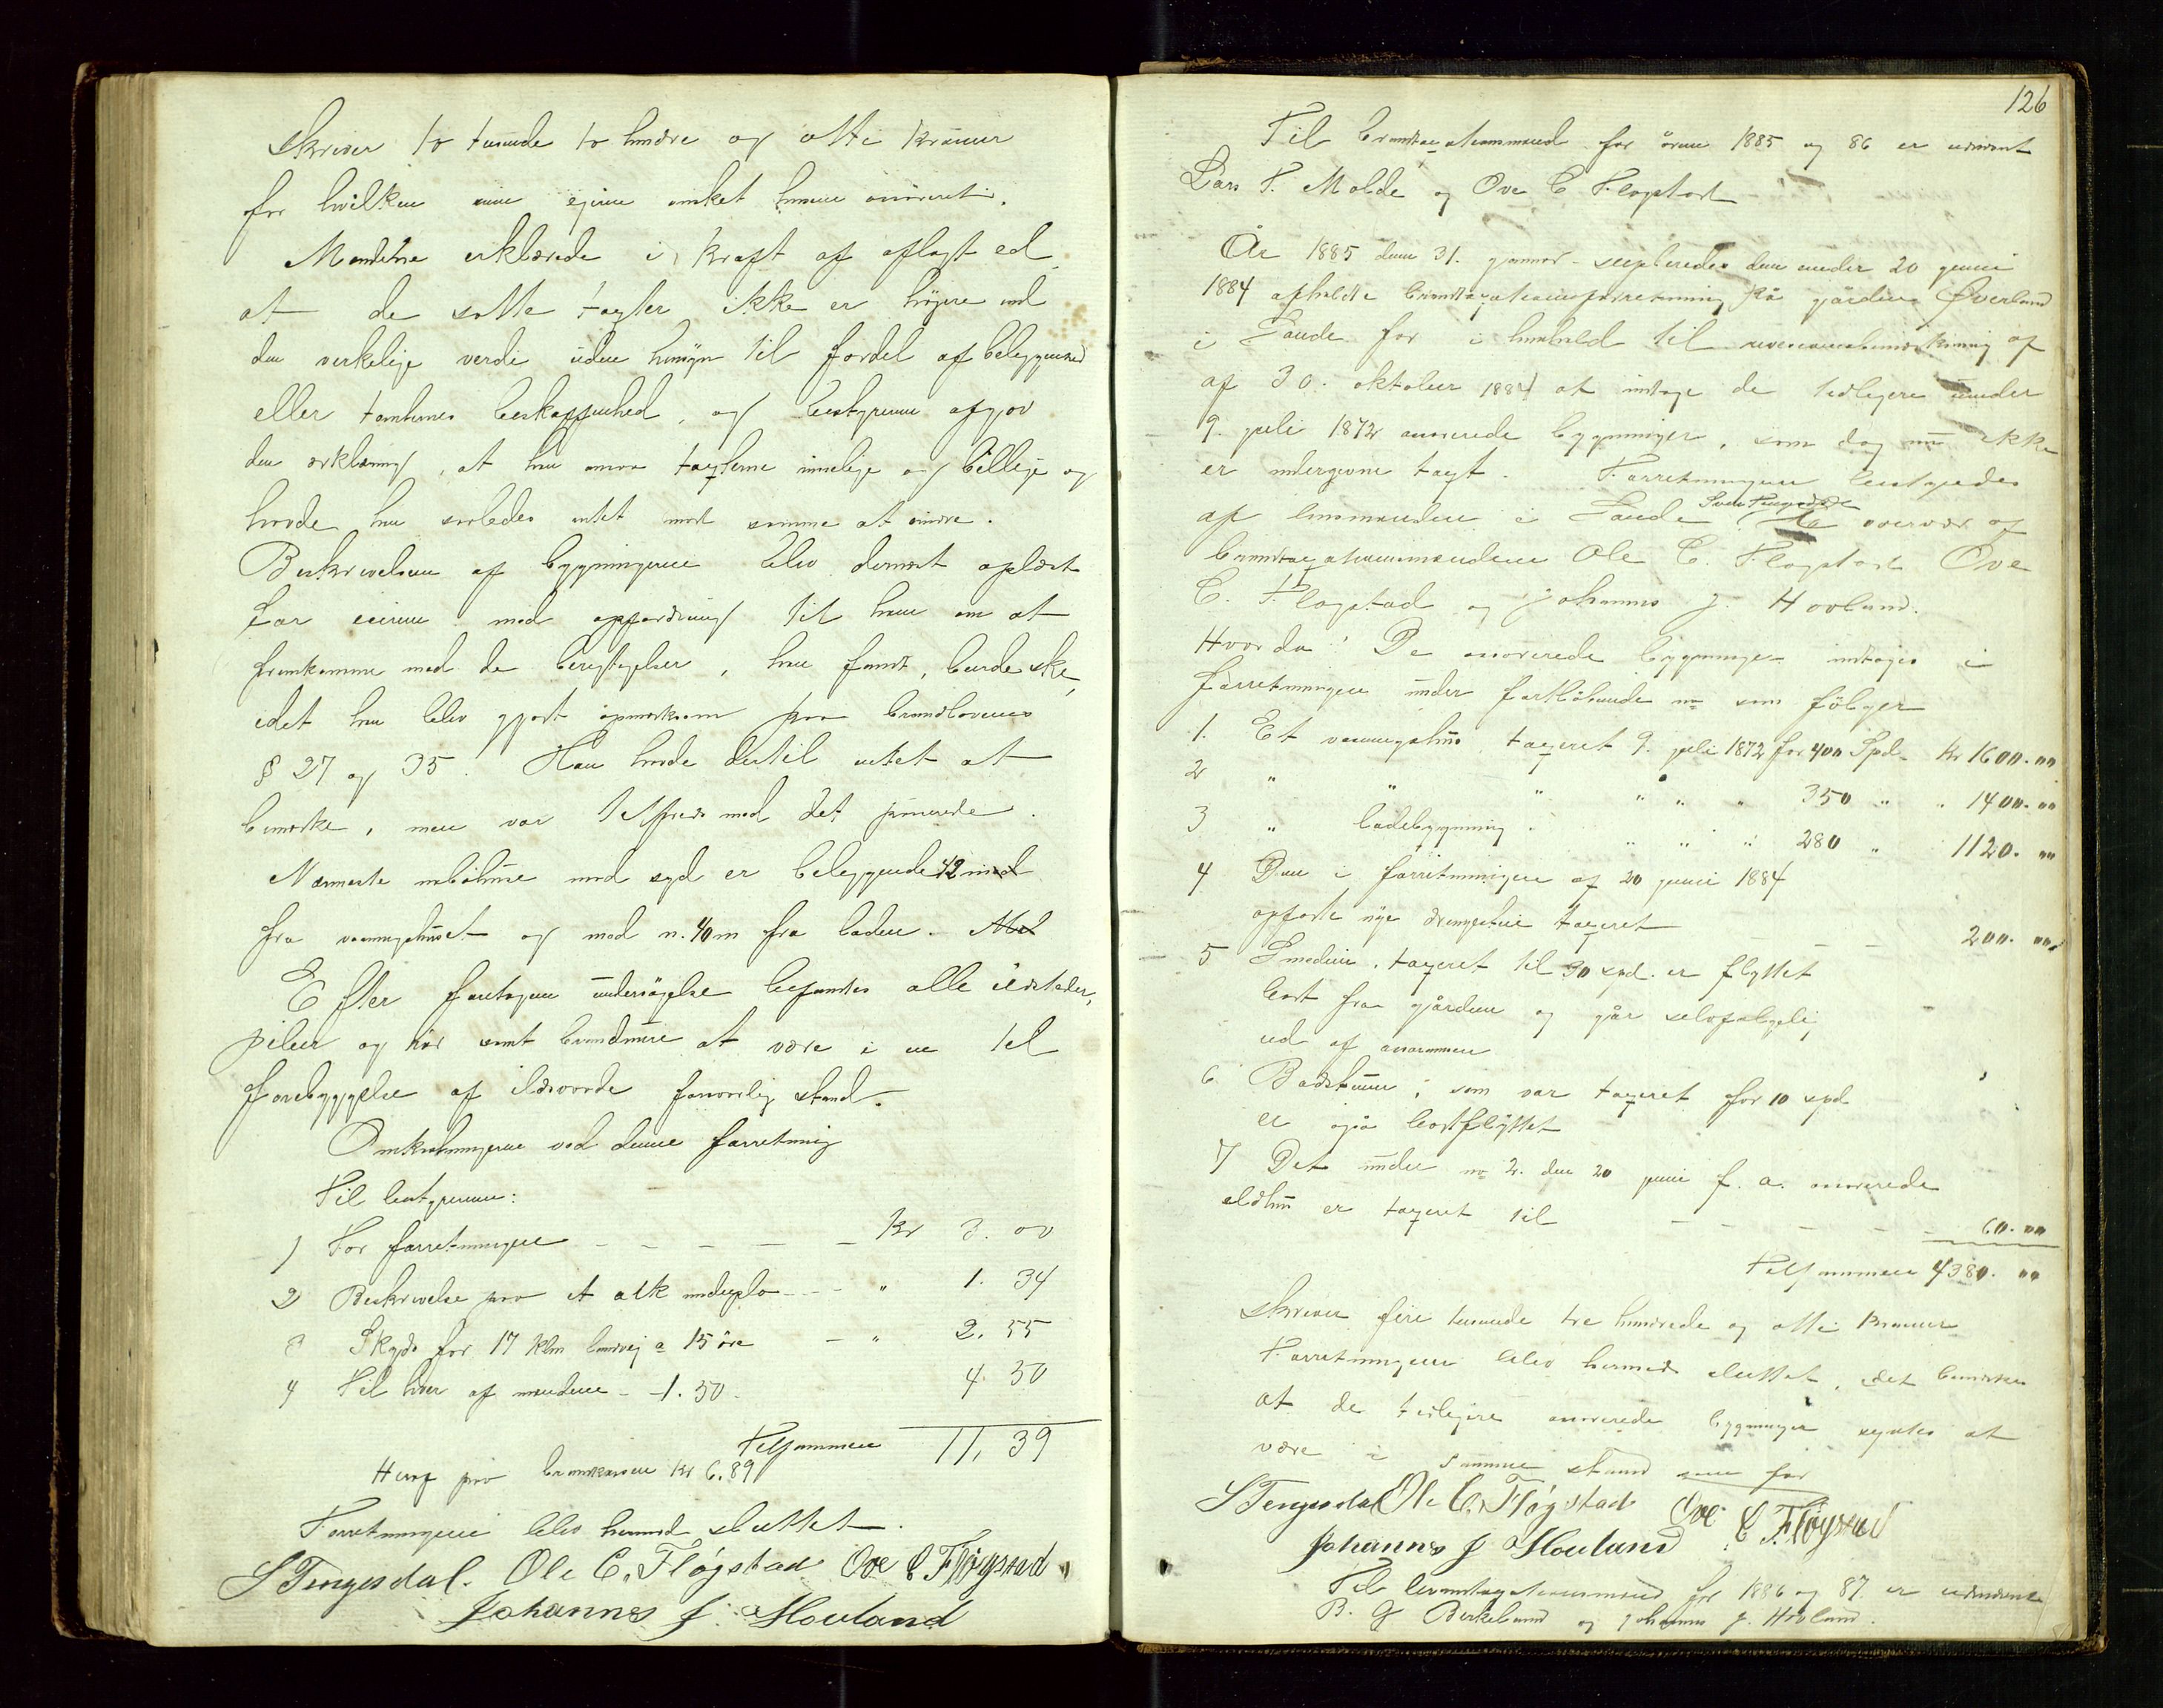 skriver to tusinde to hundre og otti kroner
for hvilken sum ejeren ønsket husene assureret.
Mændene erklærede i kraft af aflagt ed
at de satte taxter ikke er højere end
den verkelige verdi uden hensyn til fordel af beliggenhed
eller tomternes beskaffenhed, og bestyreren afgav
den erklæring, at han ansaa taxterne rimelige og billige og
havde han saaledes intet mod samme at erindre.
Beskrivelsen af bygningerne blev dernæst oplæst
for eieren med opfordring til ham om at
fremkomme med de berigtigelser, han fandt, burde ske,
idet han blev gjort opmerksom paa brandlovens
§ 27 og 35. Han havde dertil intet at
bemerke, men var tilfreds med det passerede.
Nærmeste nabohuse mod syd er beliggende 42 m
fra vaaningshuset og mod n. 40 m fra laden.
Efter foretagen undersögelse befandtes alle ildsteder,
piber og rör samt brandmure at være i en til
forebyggelse af ildsvaade forsvarlig stand.
Omkostningerne ved denne forretning
Til bestyreren:
1) For forretningen _ _ _ _ _ Kr 3. 00
2) Beskrivelse paa et ark - - - " 1. 34
3 Skyds for 17 klm landvej a 15 öre - " 2. 55
4 Til hver af mændene - 1. 50. 4. 50
Tilsammen 11, 39
Heraf paa brandkassen kr 6.89
Forretningen blev hermed sluttet.
S Tengesdal. Ole C. Fløgstad Ove C Fløgstad
Johannes J. Hovland
126
Til brandtaxationsmænd for årene 1885 og 86 er udnævnt
Lars T. Molde og Ove C Flogstad
År 1885 den 31. januar suppleredes den under 20 juni
1884 afholdte brandtaxationsforretning på gården Øverland
i Saude for i henhold til revisionsbemærkning af
af 30. oktober 1884 at indtage de tidligere under
9. juli 1872 assurerede bygninger, som dog nu ikke
er undergivne taxt. Forretningen bestyredes
af lensmanden i Saude Sven Tengesdal i overvær af
brandtaxationsmændene Ole C. Flogstad Ove
C. Flogstad og Johannes J. Hovland.
Hvorda: De assurerede bygninger indtages i
forretningen under fortlöbende no som fölger
1. Et vaaningshus taxeret 9. juli 1872 for 400 Spd. Kr 1600. "
2 " " " " " " 350 " " 1400. "
3 " ladebygning " " " " 280 " 1120. "
4 Den i forretningen af 20 juni 1884
opførte nye drengestue taxeret _ _ _ 200. "
5 Smedien, taxeret til 30 spd. er flyttet
bort fra gården og går selvfølgelig
ud af assurancen
6. Badstuen, som var taxeret for 10 spd
er også bortflyttet
7 Det under no 2. den 20 juni f. a. assurerede
eldhus er taxeret til _ _ _ _ _ 60. "
Tilsammen 4380. "
skriver fire tusinde tre hundrede og otti kroner
Forretningen blev hermed sluttet, idet bemerkes
at de tidligere assurerede bygninger syntes at
være i samme stand som før
S Tengesdal Ole C. Fløgstad Ove C Fløgstad
Johannes J Hovland
Til brandtaxationsmænd for 1886 og 87 er udnævnte
B. G Birkeland og Johannes J. Hovland.